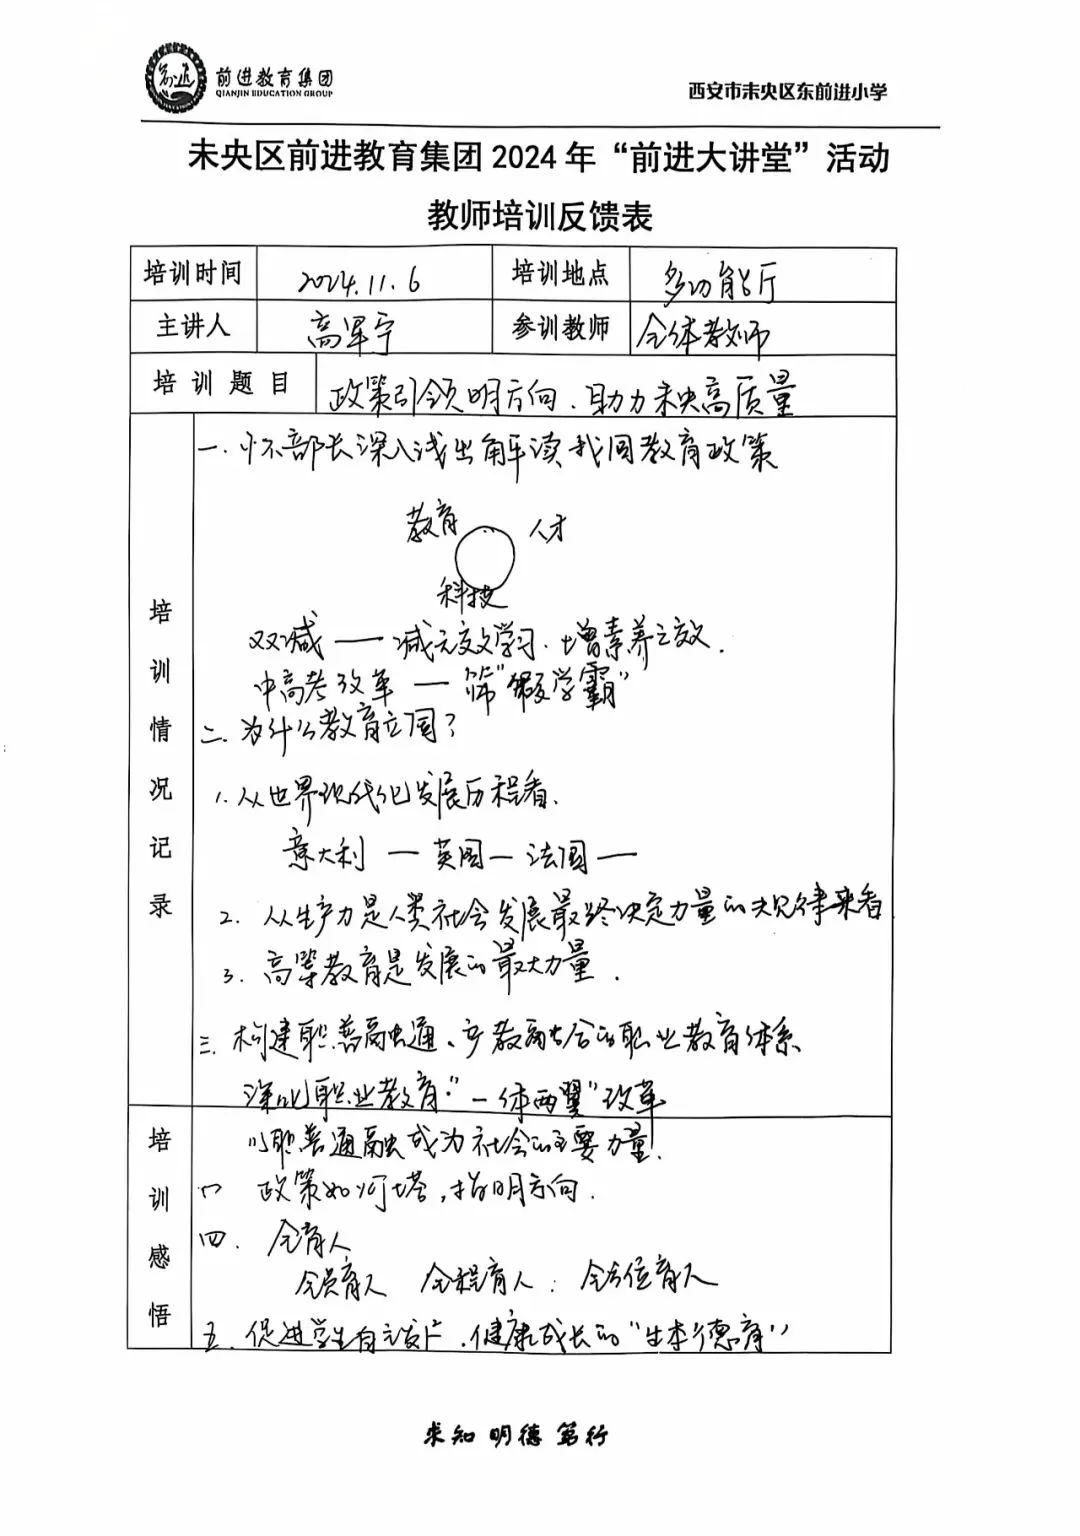 前进
前进教育集团
QIANJIN EDUCATION GROUP
西安市未央区东前进小学
未央区前进教育集团 2024 年“前进大讲堂”活动
教师培训反馈表
培训时间 2024.11.6 培训地点 多功能厅
主讲人 高军宁 参训教师 全体教师
培训题目 政策引领明方向、助力未央高质量
培训情况记录
一. 怀部长深入浅出解读我国教育政策
教育 人才
科技
双减 — 减无效学习. 增素养之效.
中高考改革 — 筛“假学霸”
二. 为什么教育立国?
1. 从世界现代化发展历程看.
意大利 — 英国 — 法国 —
2. 从生产力是人类社会发展最终决定力量的规律来看
3. 高等教育是发展的最大力量.
三. 构建职普融通、产教融合的职业教育体系
深化职业教育“一体两翼”改革
培训感悟
以职普通融成为社会的主要力量!
政策如灯塔,指明方向.
四. 全育人
全员育人 全程育人: 全方位育人
五. 促进学生自主发广.健康成长的“生本德育”
求知 明德 笃行